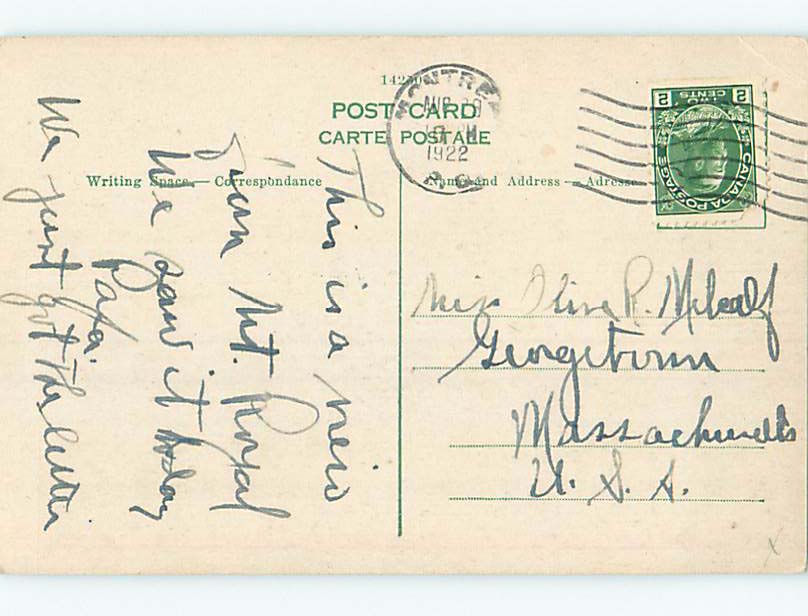 POST CARD
CARTE POSTALE
Writing Space — Correspondance
Name and Address — Adresse
MONTREAL
1922
P.Q.
2 TWO CENTS 2
CANADA POSTAGE
This is a view
from Mt. Royal
We saw it today
Papa.
We just got the letter
Miss Olive R. Metcalf
Georgetown
Massachusetts
U. S. A.